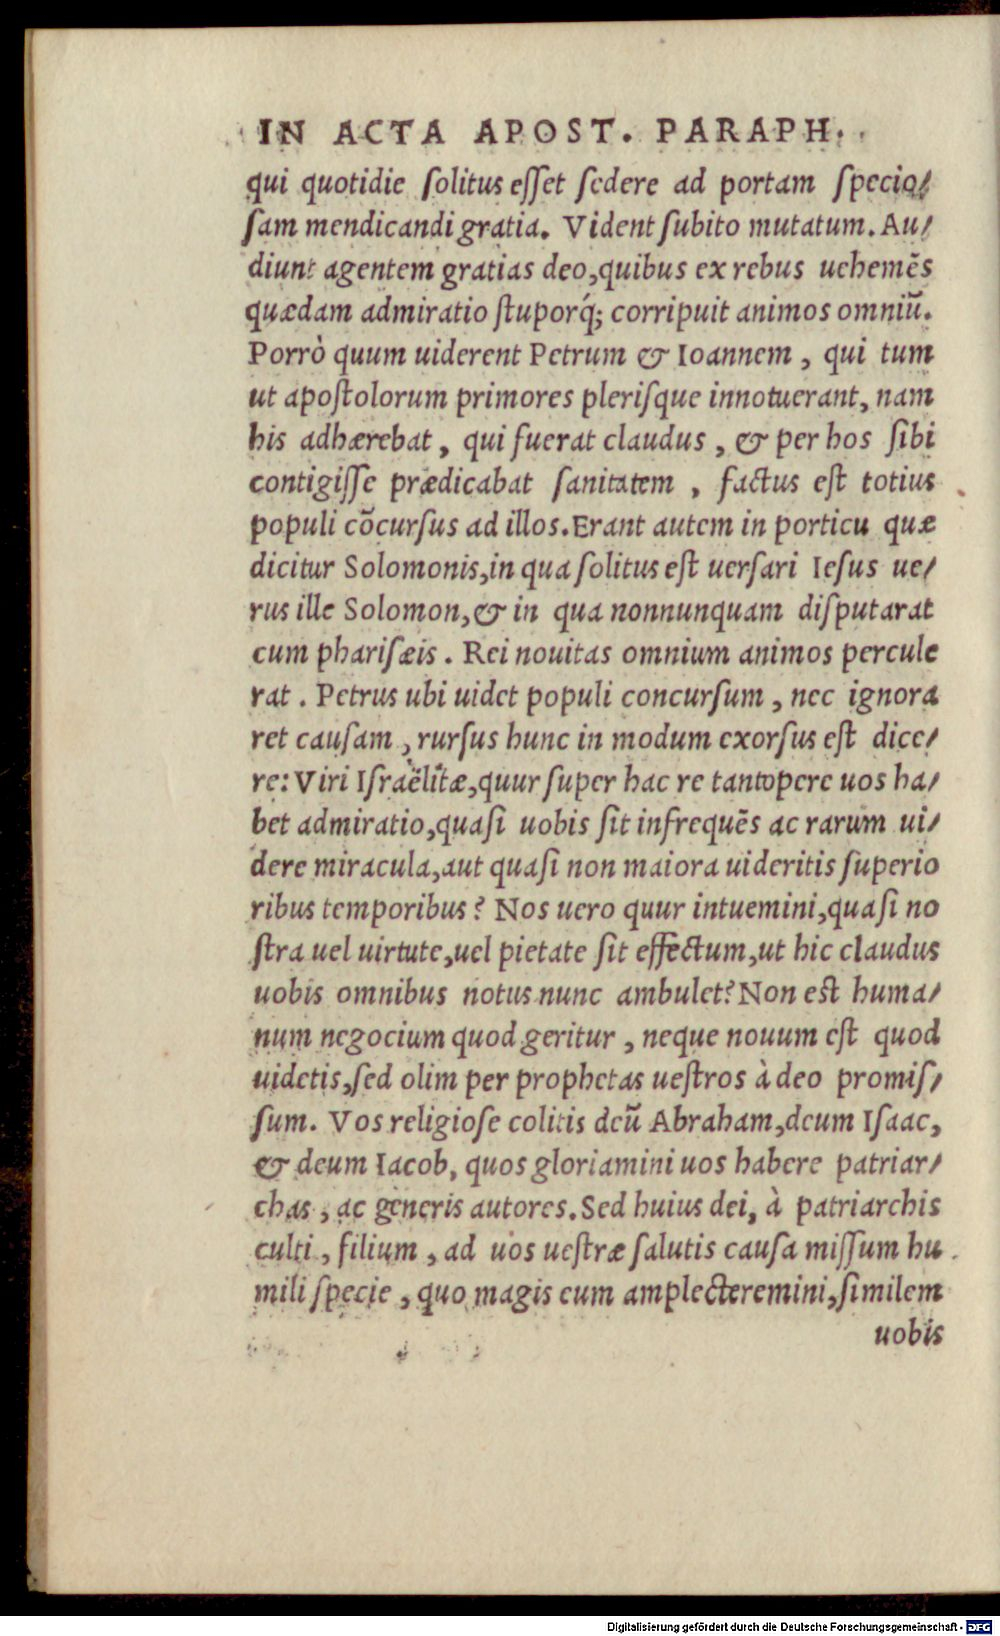 IN ACTA APOST. PARAPH.
qui quotidie ſolitus eſſet ſedere ad portam ſpecio/
ſam mendicandi gratia. Vident ſubito mutatum. Au/
diunt agentem gratias deo, quibus ex rebus uehemẽs
quædam admiratio ſtuporq́; corripuit animos omniũ.
Porrò quum uiderent Petrum & Ioannem, qui tum
ut apoſtolorum primores pleriſque innotuerant, nam
his adhærebat, qui fuerat claudus, & per hos ſibi
contigiſſe prædicabat ſanitatem, factus eſt totius
populi cõcurſus ad illos. Erant autem in porticu quæ
dicitur Solomonis, in qua ſolitus eſt uerſari Ieſus ue/
rus ille Solomon, & in qua nonnunquam diſputarat
cum phariſæis. Rei nouitas omnium animos percule
rat. Petrus ubi uidet populi concurſum, nec ignora
ret cauſam, rurſus hunc in modum exorſus eſt dice/
re: Viri Iſraëlitæ, quur ſuper hac re tantopere uos ha/
bet admiratio, quaſi uobis ſit infrequẽs ac rarum ui/
dere miracula, aut quaſi non maiora uideritis ſuperio
ribus temporibus? Nos uero quur intuemini, quaſi no
ſtra uel uirtute, uel pietate ſit effectum, ut hic claudus
uobis omnibus notus nunc ambulet? Non eſt huma/
num negocium quod geritur, neque nouum eſt quod
uidetis, ſed olim per prophetas ueſtros à deo promiſ/
ſum. Vos religioſe colitis deũ Abraham, deum Iſaac,
& deum Iacob, quos gloriamini uos habere patriar/
chas, ac generis autores. Sed huius dei, à patriarchis
culti, filium, ad uos ueſtræ ſalutis cauſa miſſum hu
mili ſpecie, quo magis eum amplecteremini, ſimilem
uobis
Digitalisierung gefördert durch die Deutsche Forschungsgemeinschaft - DFG